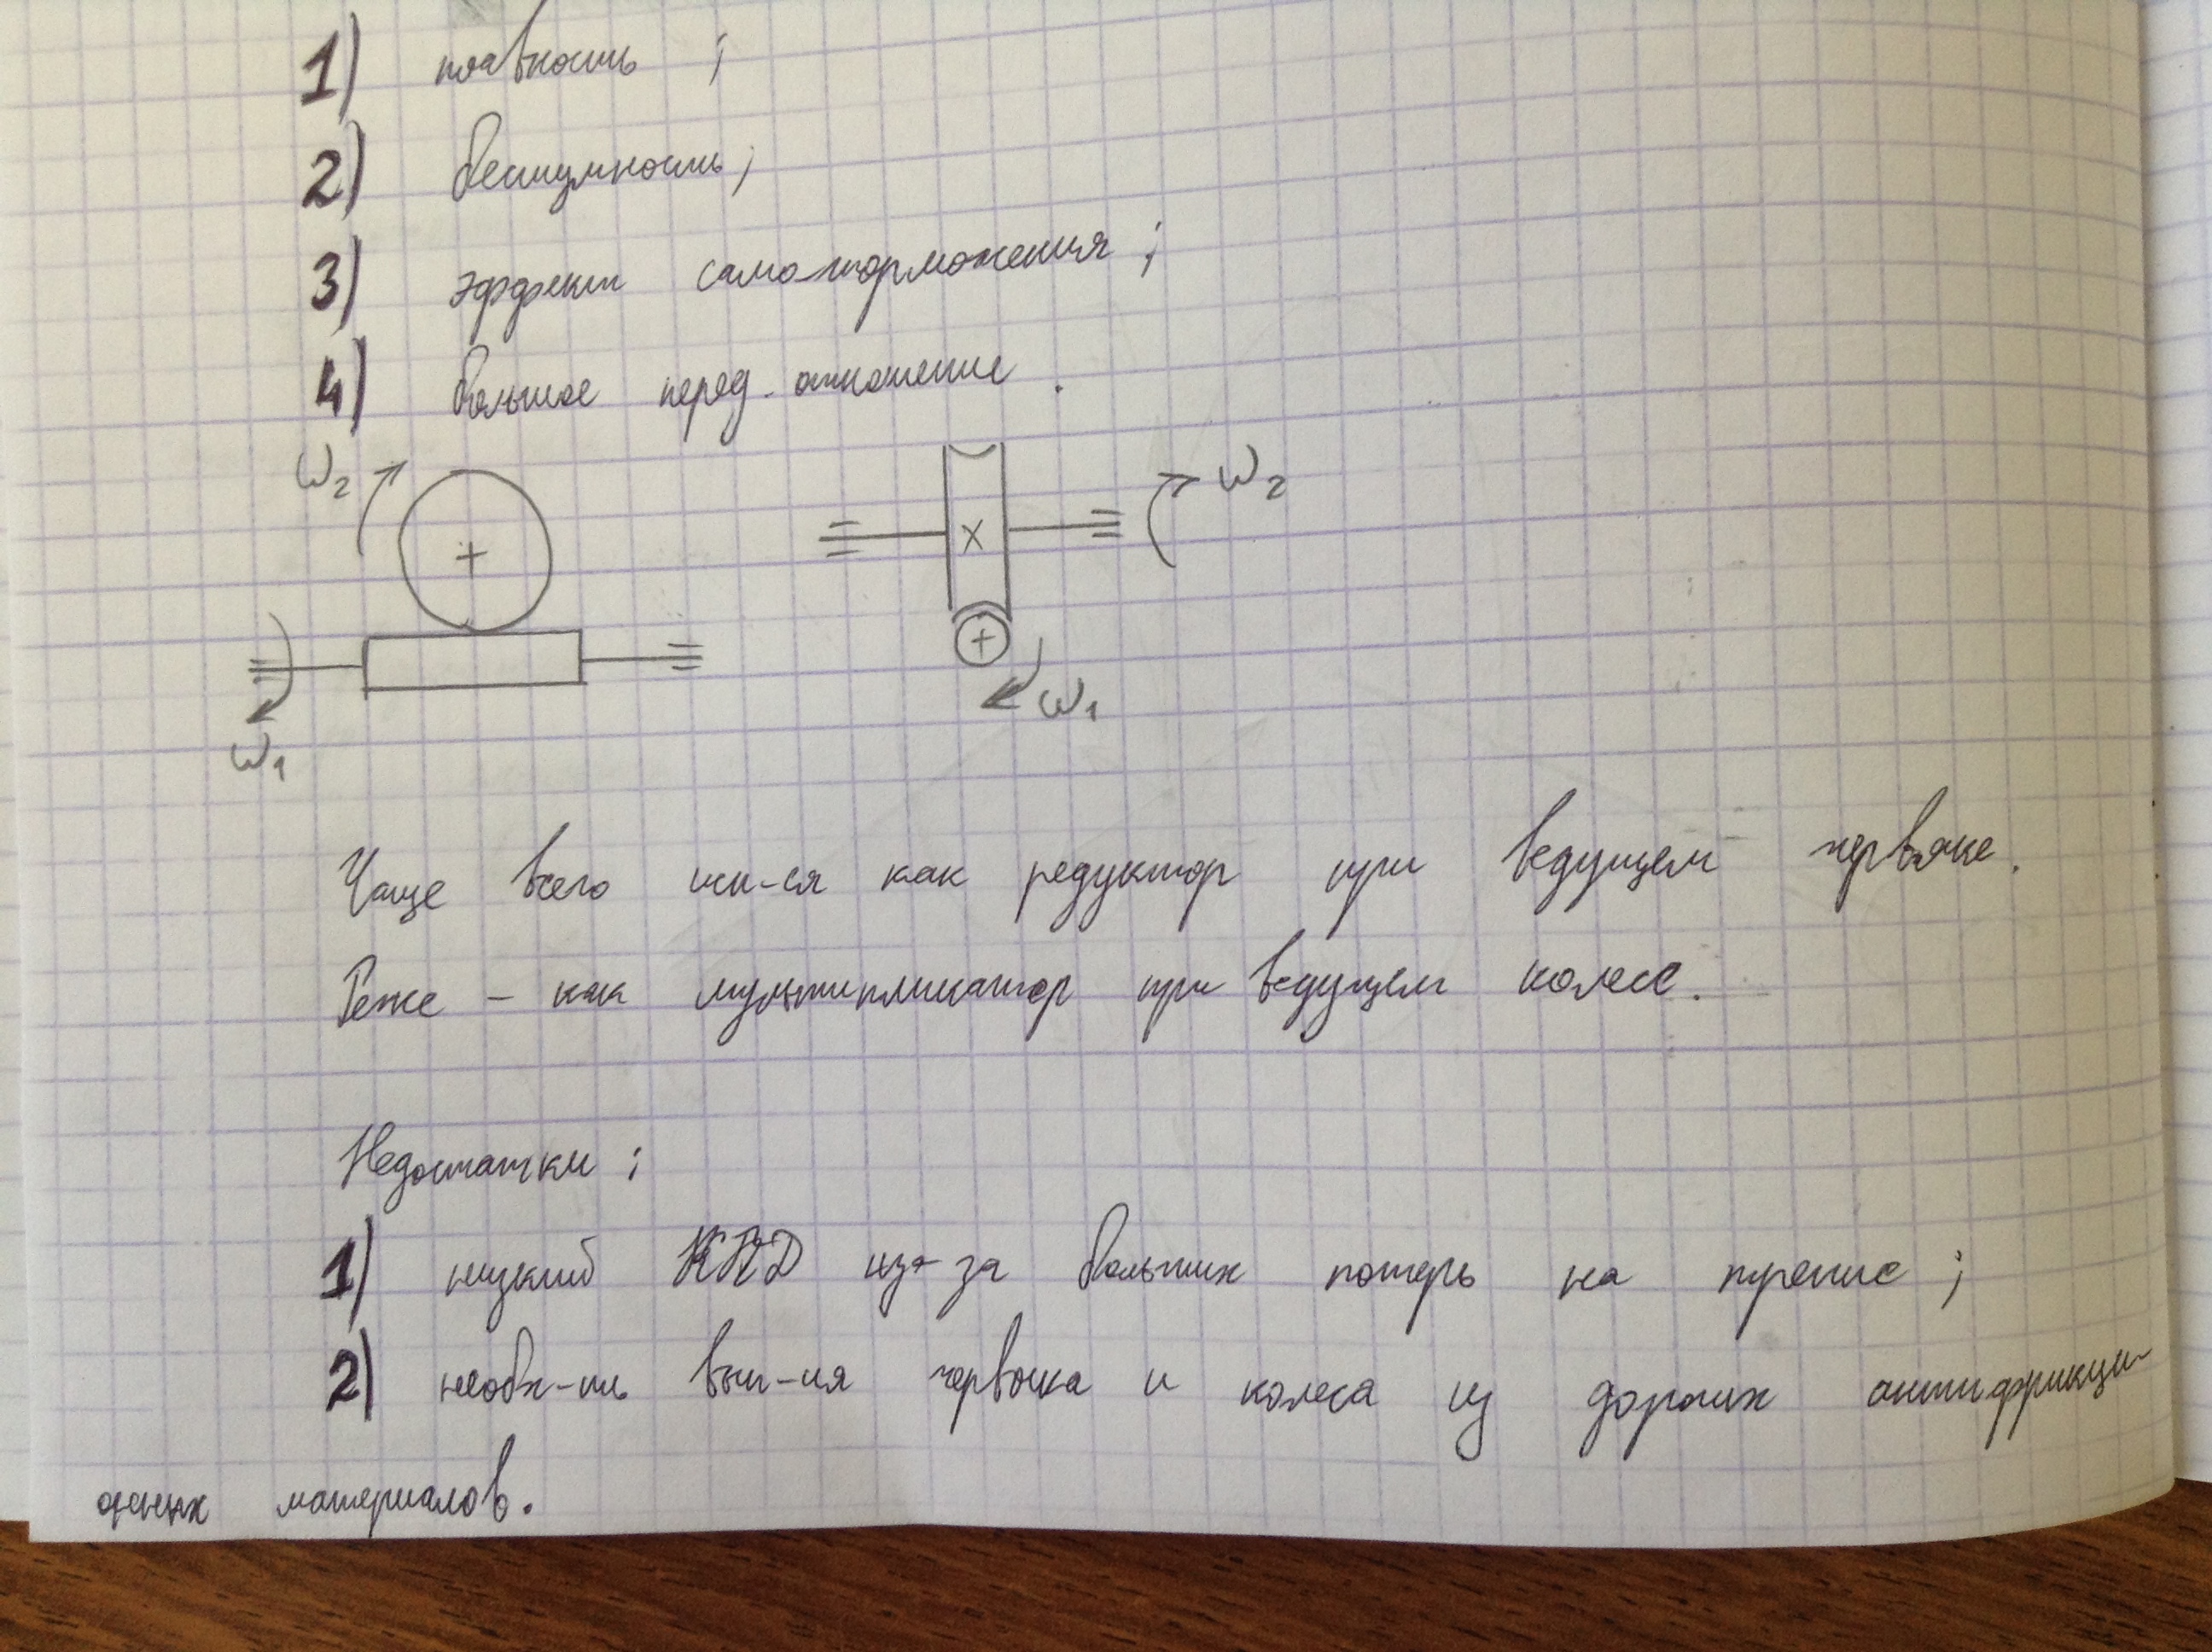 1) плавность ;
2) бесшумность ;
3) эффект самоторможения ;
4) большое перед. отношение .
ω₂ ω₂
ω₁ ω₁
Чаще всего исп-ся как редуктор при ведущем червяке.
Реже – как мультипликатор при ведущем колесе.
Недостатки :
1) низкий КПД из-за больших потерь на трение ;
2) необх-ть вып-ия червяка и колеса из дорогих антифрикци-
онных материалов.